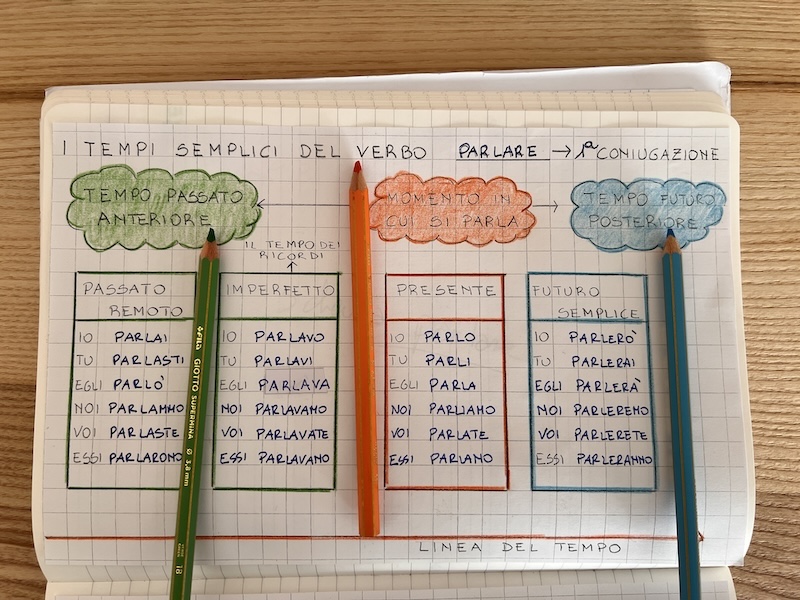 I TEMPI SEMPLICI DEL VERBO PARLARE → 1ª CONIUGAZIONE
TEMPO PASSATO
ANTERIORE
MOMENTO IN
CUI SI PARLA
TEMPO FUTURO
POSTERIORE
IL TEMPO DEI
RICORDI
PASSATO
REMOTO
IO PARLAI
TU PARLASTI
EGLI PARLÒ
NOI PARLAMMO
VOI PARLASTE
ESSI PARLARONO
IMPERFETTO
IO PARLAVO
TU PARLAVI
EGLI PARLAVA
NOI PARLAVAMO
VOI PARLAVATE
ESSI PARLAVANO
PRESENTE
IO PARLO
TU PARLI
EGLI PARLA
NOI PARLIAMO
VOI PARLATE
ESSI PARLANO
FUTURO
SEMPLICE
IO PARLERÒ
TU PARLERAI
EGLI PARLERÀ
NOI PARLEREMO
VOI PARLERETE
ESSI PARLERANNO
LINEA DEL TEMPO
FILA GIOTTO SUPERMINA Ø 3,8 mm